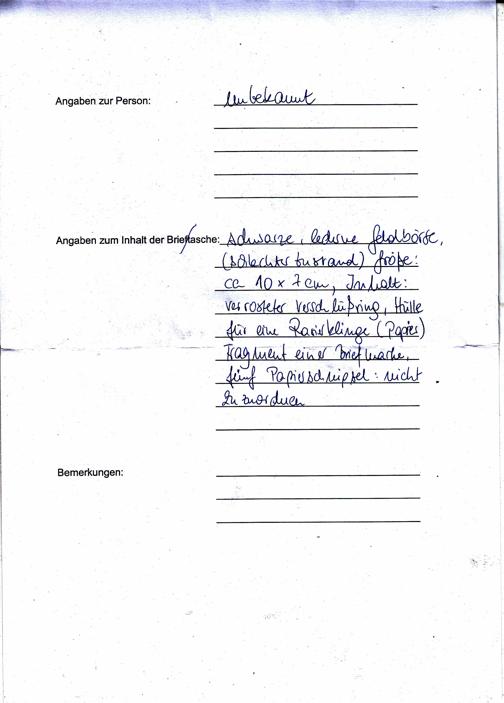 Angaben zur Person: Unbekannt
Angaben zum Inhalt der Brieftasche: schwarze, lederne Geldbörse,
(schlechter Zustand) Größe:
ca 10 x 7 cm, Inhalt:
verrosteter Verschlußring, Hülle
für eine Rasierklinge (Papier)
Fragment einer Briefmarke,
fünf Papierschnipsel: nicht
zuzuordnen
Bemerkungen: